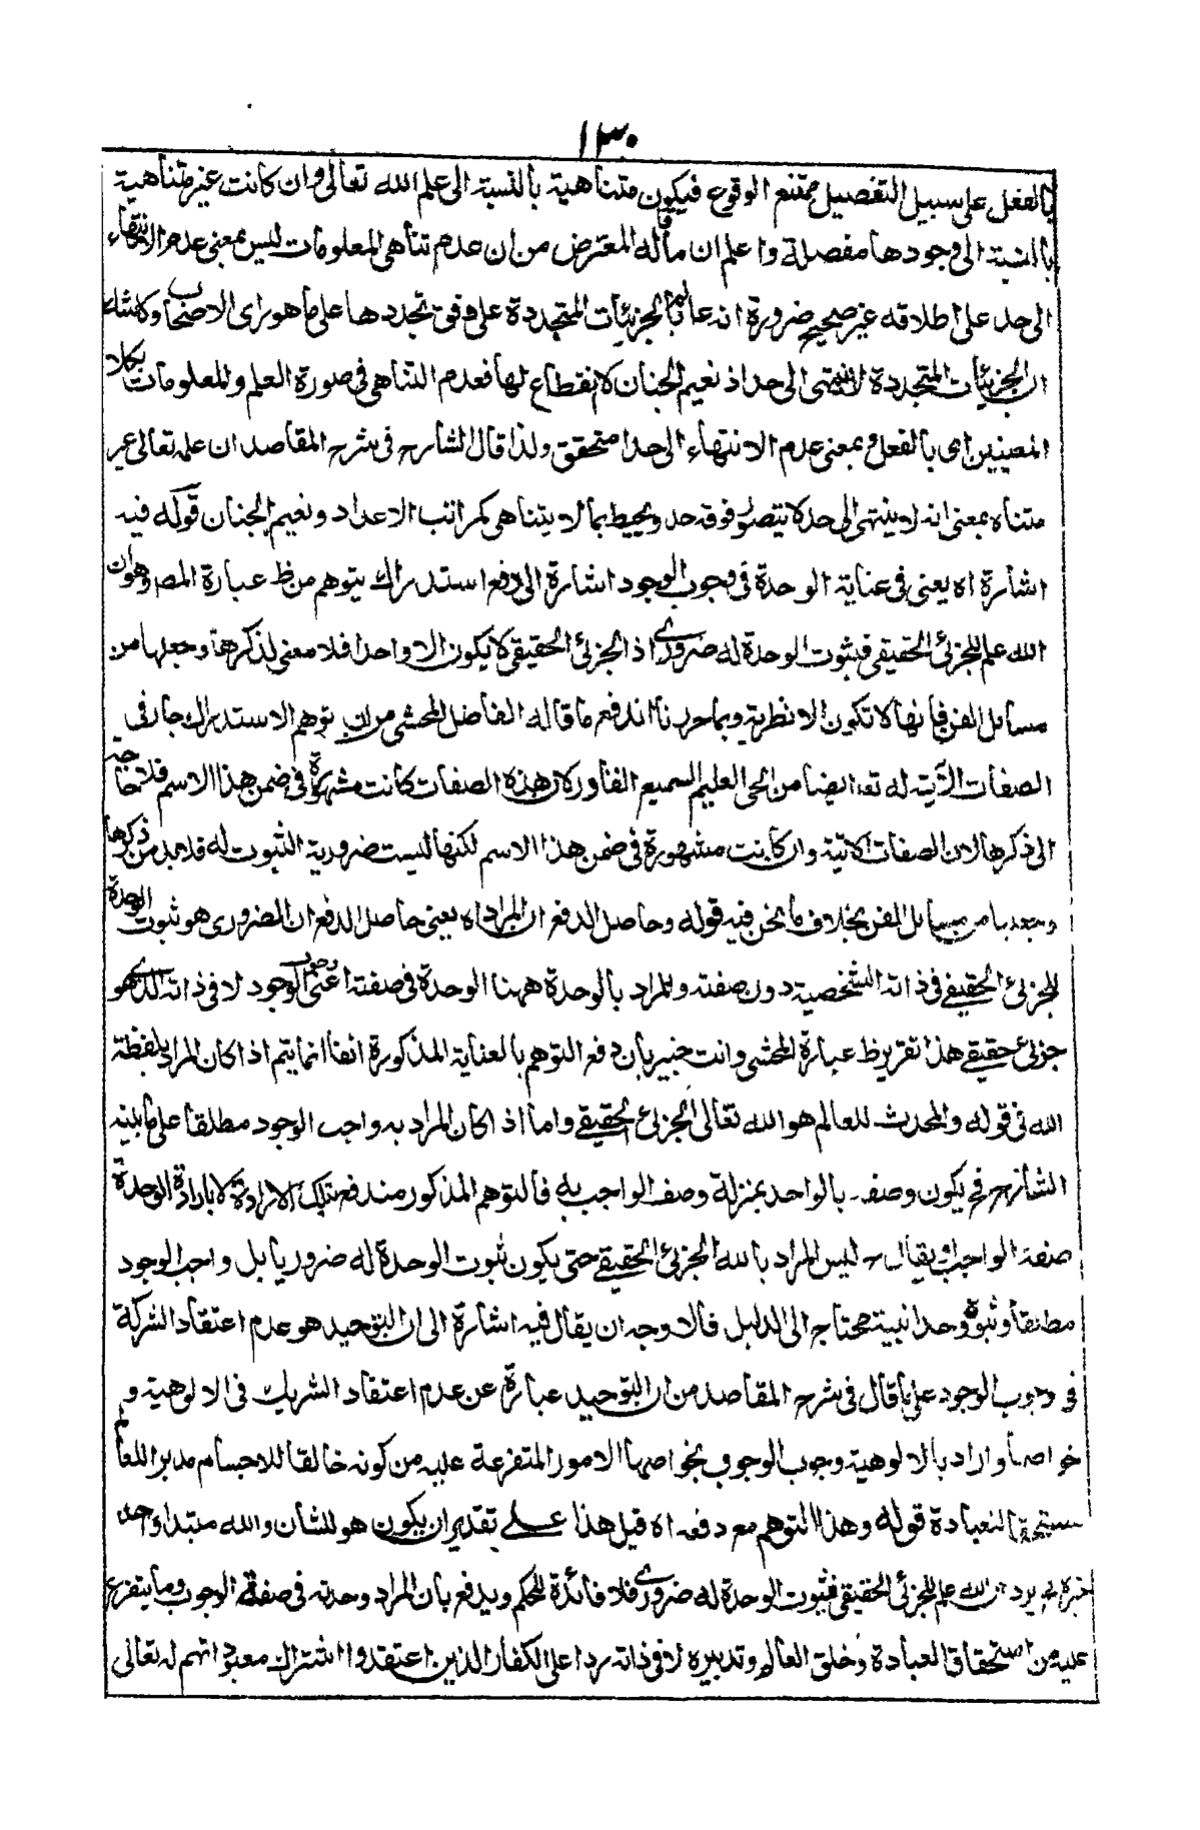 ١٣٠
بالفعل على سبيل التفصيل ممتنع الوقوع فيكون متناهية بالنسبة الى علم الله تعالى وان كانت غير متناهية
بالنسبة الى وجودها مفصلة واعلم ان ما قاله المعترض من ان عدم تناهى المعلومات ليس بمعنى عدم الانتهاء
الى حد على اطلاقه غير صحيح ضرورة انه عالم بالجزئيات المتجددة على وفق تجددها على ما هو راى الاصحاب ولا شك
ان الجزئيات المتجددة لا تنتهى الى حد اذ نعيم الجنان لا انقطاع لها فعدم التناهى فى صورة العلم والمعلومات بكلا
المعنيين اى بالفعل وبمعنى عدم الانتهاء الى حد متحقق ولذا قال الشارح فى شرح المقاصد ان علمه تعالى غير
متناه بمعنى انه لا ينتهى الى حد لا يتصور فوقه حد ويحيط بما لا يتناهى كمراتب الاعداد ونعيم الجنان قوله فيه
اشارة اه يعنى فى عناية الوحدة فى وجوب الوجود اشارة الى دفع استدراك يتوهم من ظ عبارة المصر وهو ان
الله علم للجزئى الحقيقى فثبوت الوحدة له ضرورى اذ الجزئى الحقيقى لا يكون الا واحدا فلا معنى لذكرها وجعلها من
مسائل الفن فانها لا تكون الا نظرية وبما حررنا اندفع ما قاله الفاضل المحشى من ان توهم الاستدراك جار فى
الصفات الآتية له تعه ايضا من الحى العليم السميع القادر لان هذه الصفات كانت مشهورة فى ضمن هذا الاسم فلا حاجة
الى ذكرها لان الصفات الآتية وان كانت مشهورة فى ضمن هذا الاسم لكنها ليست ضرورية الثبوت له فلا بد من ذكرها
وجعلها من مسائل الفن بخلاف ما نحن فيه قوله وحاصل الدفع ان المراد اه يعنى حاصل الدفع ان الضرورى هو ثبوت الوحدة
للجزئ الحقيقى فى ذاته الشخصية دون صفته والمراد بالوحدة ههنا الوحدة فى صفته اعنى وجوب الوجود لا فى ذاته الذى هو
جزئ حقيقى هذا تقرير ظ عبارة المحشى وانت خبير بان دفع التوهم بالعناية المذكورة انفا انما يتم اذا كان المراد بلفظة
الله فى قوله والمحدث للعالم هو الله تعالى الجزئ الحقيقى واما اذا كان المراد به واجب الوجود مطلقا على ما بينه
الشارح فح يكون وصفه بالواحد بمنزلة وصف الواجب به فالتوهم المذكور مندفع بتلك الارادة لا بارادة الوحدة
صفة الواجب ويقال ح ليس المراد بالله الجزئ الحقيقى حتى يكون ثبوت الوحدة له ضروريا بل واجب الوجود
مطلقا وثبوت وحدانيته محتاج الى الدليل فالاوجه ان يقال فيه اشارة الى ان التوحيد هو عدم اعتقاد الشركة
فى وجوب الوجود على ما قال فى شرح المقاصد من ان التوحيد عبارة عن عدم اعتقاد الشريك فى الالوهية و
خواصها واراد بالالوهية وجوب الوجود وبخواصها الامور المتفرعة عليه من كونه خالقا للاجسام مدبرا للعالم
مستحقا للعبادة قوله وهذا التوهم مع دفعه اه قيل هذا على تقدير ان يكون هو للشان والله مبتدا واحد
خبره يرد ان الله علم للجزئى الحقيقى فثبوت الوحدة له ضرورى فلا فائدة للحكم ويدفع بان المراد وحدته فى صفة الوجوب وما يتفرع
عليه من استحقاق العبادة وخلق العالم وتدبيره لا فى ذاته ردا على الكفار الذين اعتقدوا اشتراك معبوداتهم له تعالى